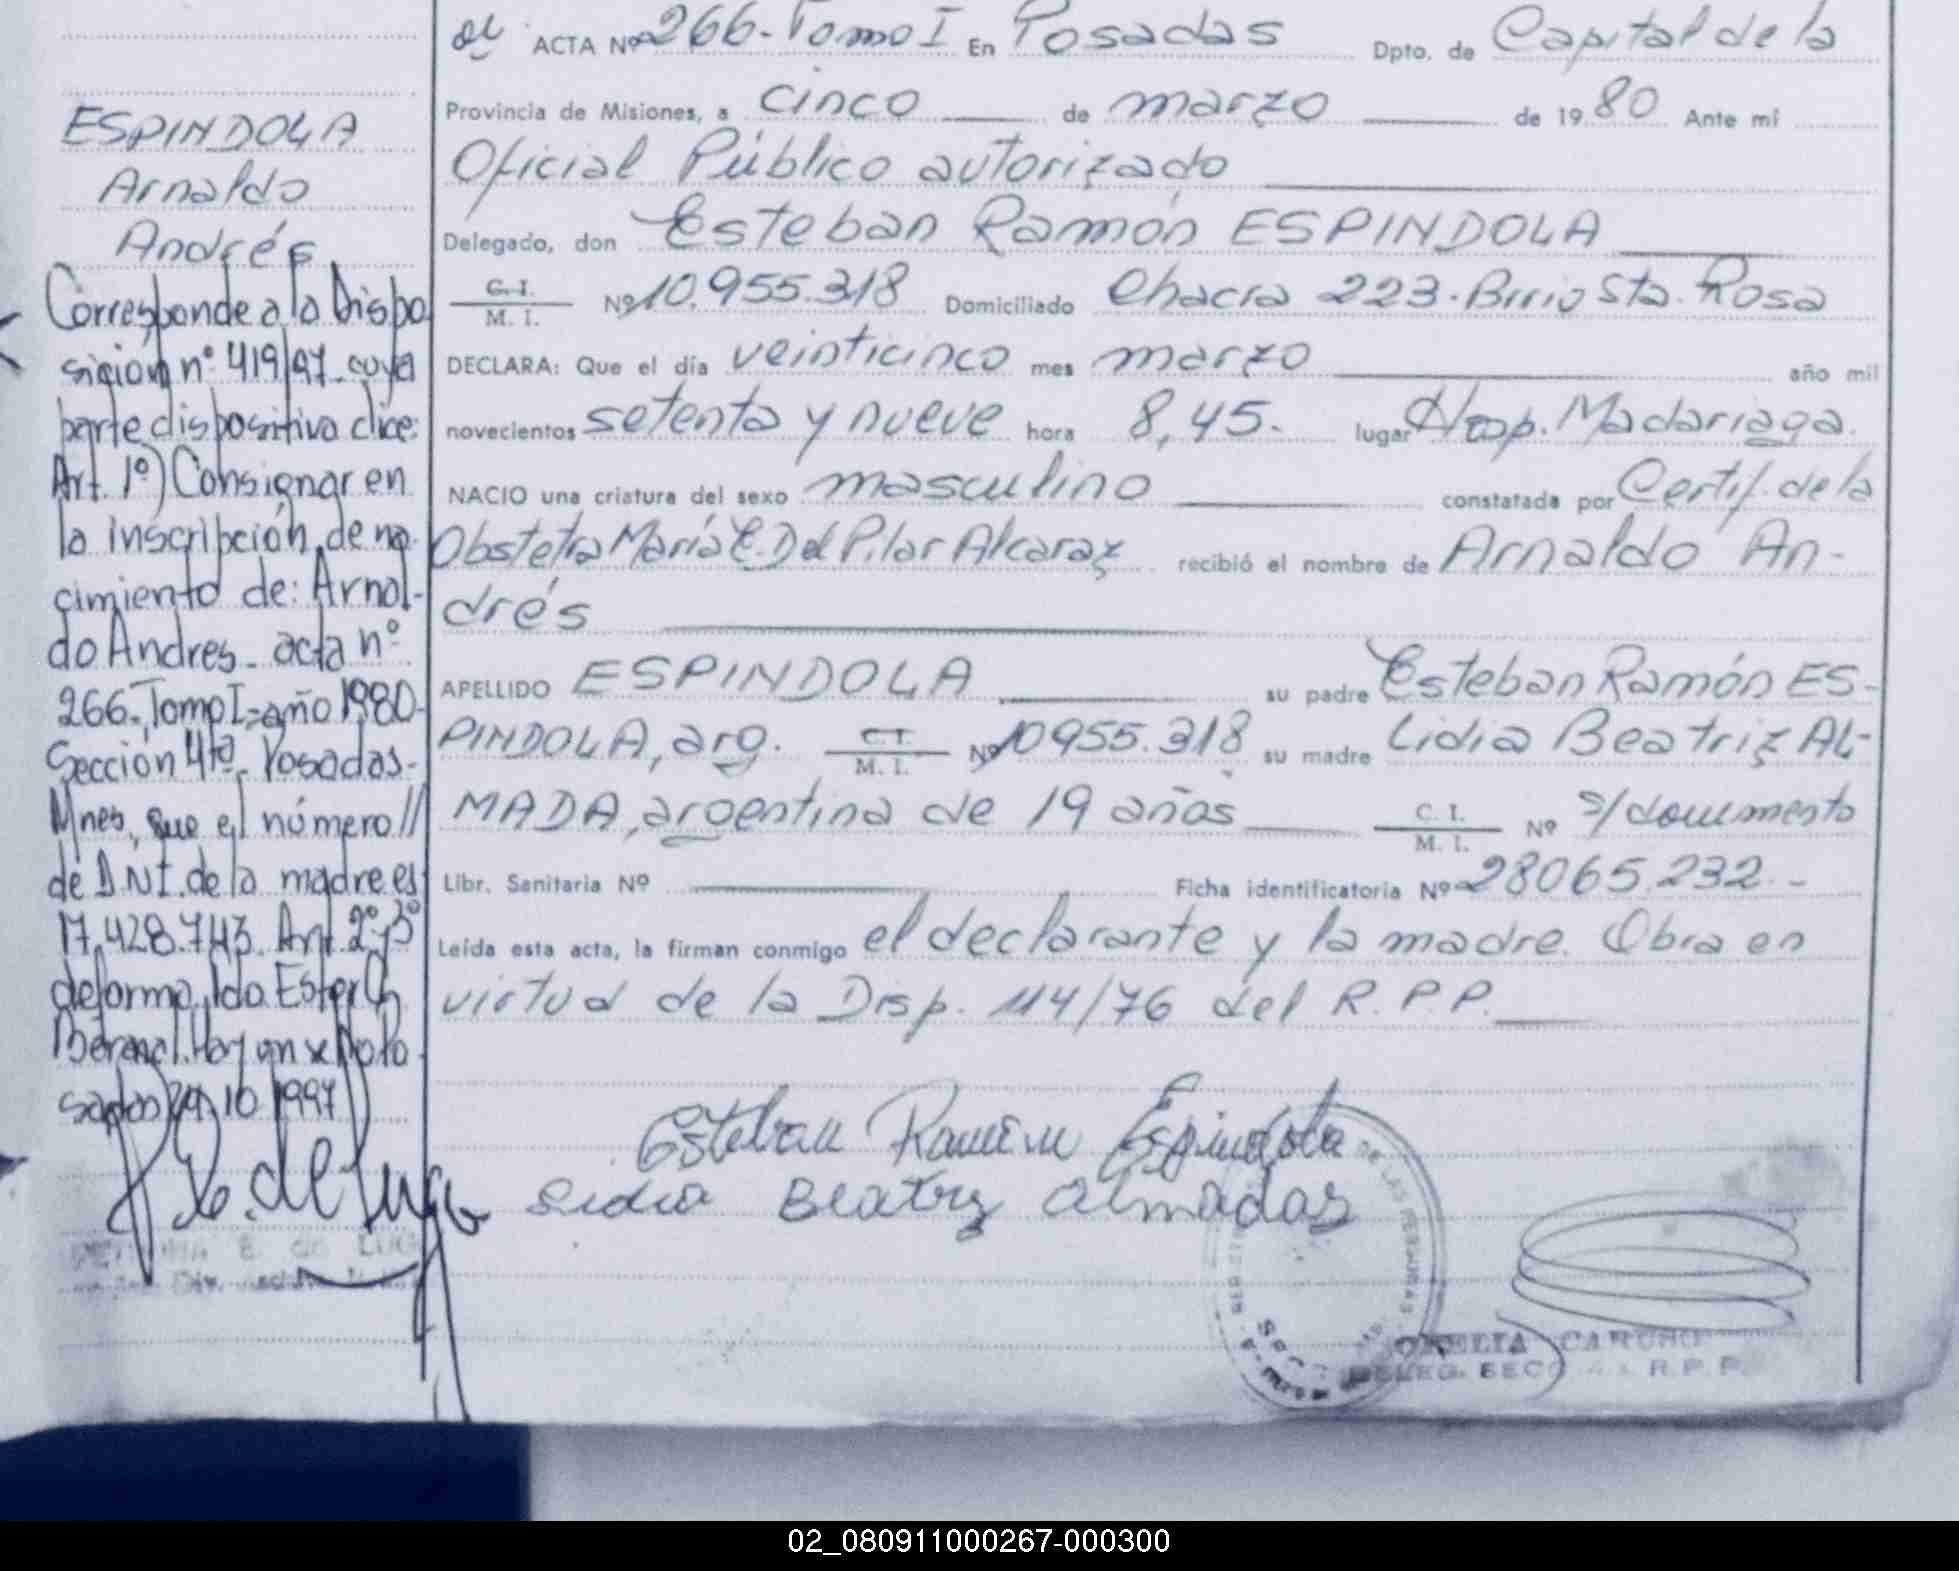 ACTA Nº 266-Tomo I En Posadas Dpto. de Capital de la
Provincia de Misiones, a cinco de marzo de 1980 Ante mí
Oficial Público autorizado
Delegado, don Esteban Ramón ESPINDOLA
C.I. M.I. Nº 10.955.318 Domiciliado Chacra 223-Brrio Sta. Rosa
DECLARA: Que el día veinticinco mes marzo año mil
novecientos setenta y nueve hora 8,45. lugar Hosp. Madariaga.
NACIO una criatura del sexo masculino constatada por Certif. de la
Obstetra María E. Del Pilar Alcaraz recibió el nombre de Arnaldo An-
drés
APELLIDO ESPINDOLA su padre Esteban Ramón ES-
PINDOLA, arg. C.I. M.I. Nº 10955.318 su madre Lidia Beatriz AL-
MADA, argentina de 19 años C. I. M. I. Nº s/documento
Libr. Sanitaria Nº Ficha identificatoria Nº 28065.232.-
Leída esta acta, la firman conmigo el declarante y la madre. Obra en
virtud de la Disp. 114/76 del R.P.P.
Esteban Ramón Espindola
Lidia Beatriz Almadas
DE LAS PERSONAS
OFELIA CARUSO
DELEG. SECC. 4a. R.P.P.
ESPINDOLA
Arnaldo
Andrés
Corresponde a la Dispo
sicion nº 419/97 cuya
parte dispositiva dice:
Art. 1º) Consignar en
la inscripción de na-
cimiento de: Arnal-
do Andres - acta nº
266-Tomo I-año 1980-
Sección 4ta. Posadas-
Mnes, que el número //
de D.N.I. de la madre es
17.428.743. Art 2º y 3º
de forma. Ida Ester
Bernal. Hoy
sadas 24 10 1997
E. de LUGO
Div.
02_080911000267-000300